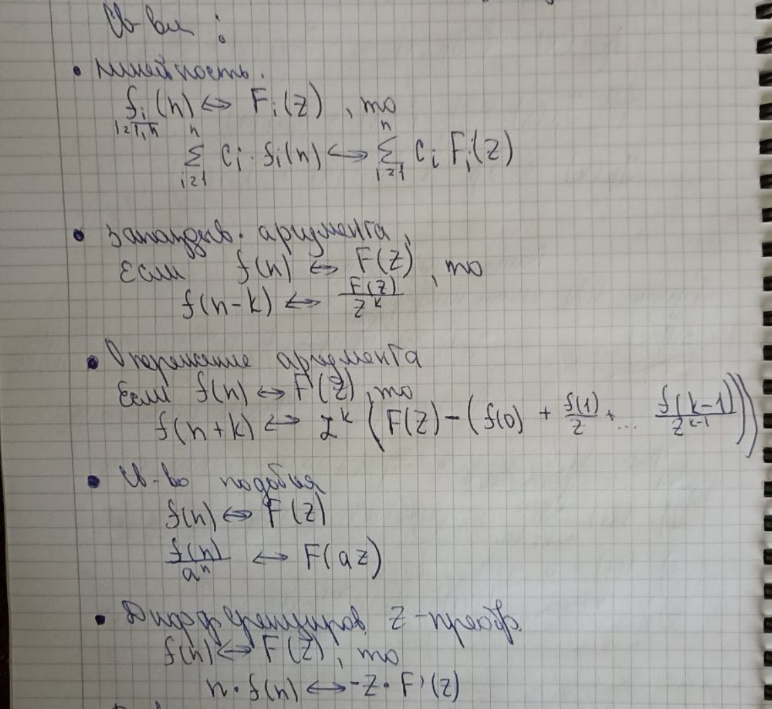 Св-ва :
• Линейность.
f_i(n) ⟺ F_i(z), то
i=1,n
∑_{i=1}^{n} c_i · f_i(n) ⟺ ∑_{i=1}^{n} c_i F_i(z)
• Запаздыв. аргумента.
Если f(n) ⟺ F(z), то
f(n-k) ⟺ F(z)/z^k
• Опережение аргумента
Если f(n) ⟺ F(z), то
f(n+k) ⟺ z^k (F(z) - (f(0) + f(1)/z + ... f(k-1)/z^{k-1}))
• Св-во подобия
f(n) ⟺ F(z)
f(n)/a^n ⟺ F(az)
• Дифференциров. z-преобр.
f(n) ⟺ F(z), то
n · f(n) ⟺ -z · F'(z)